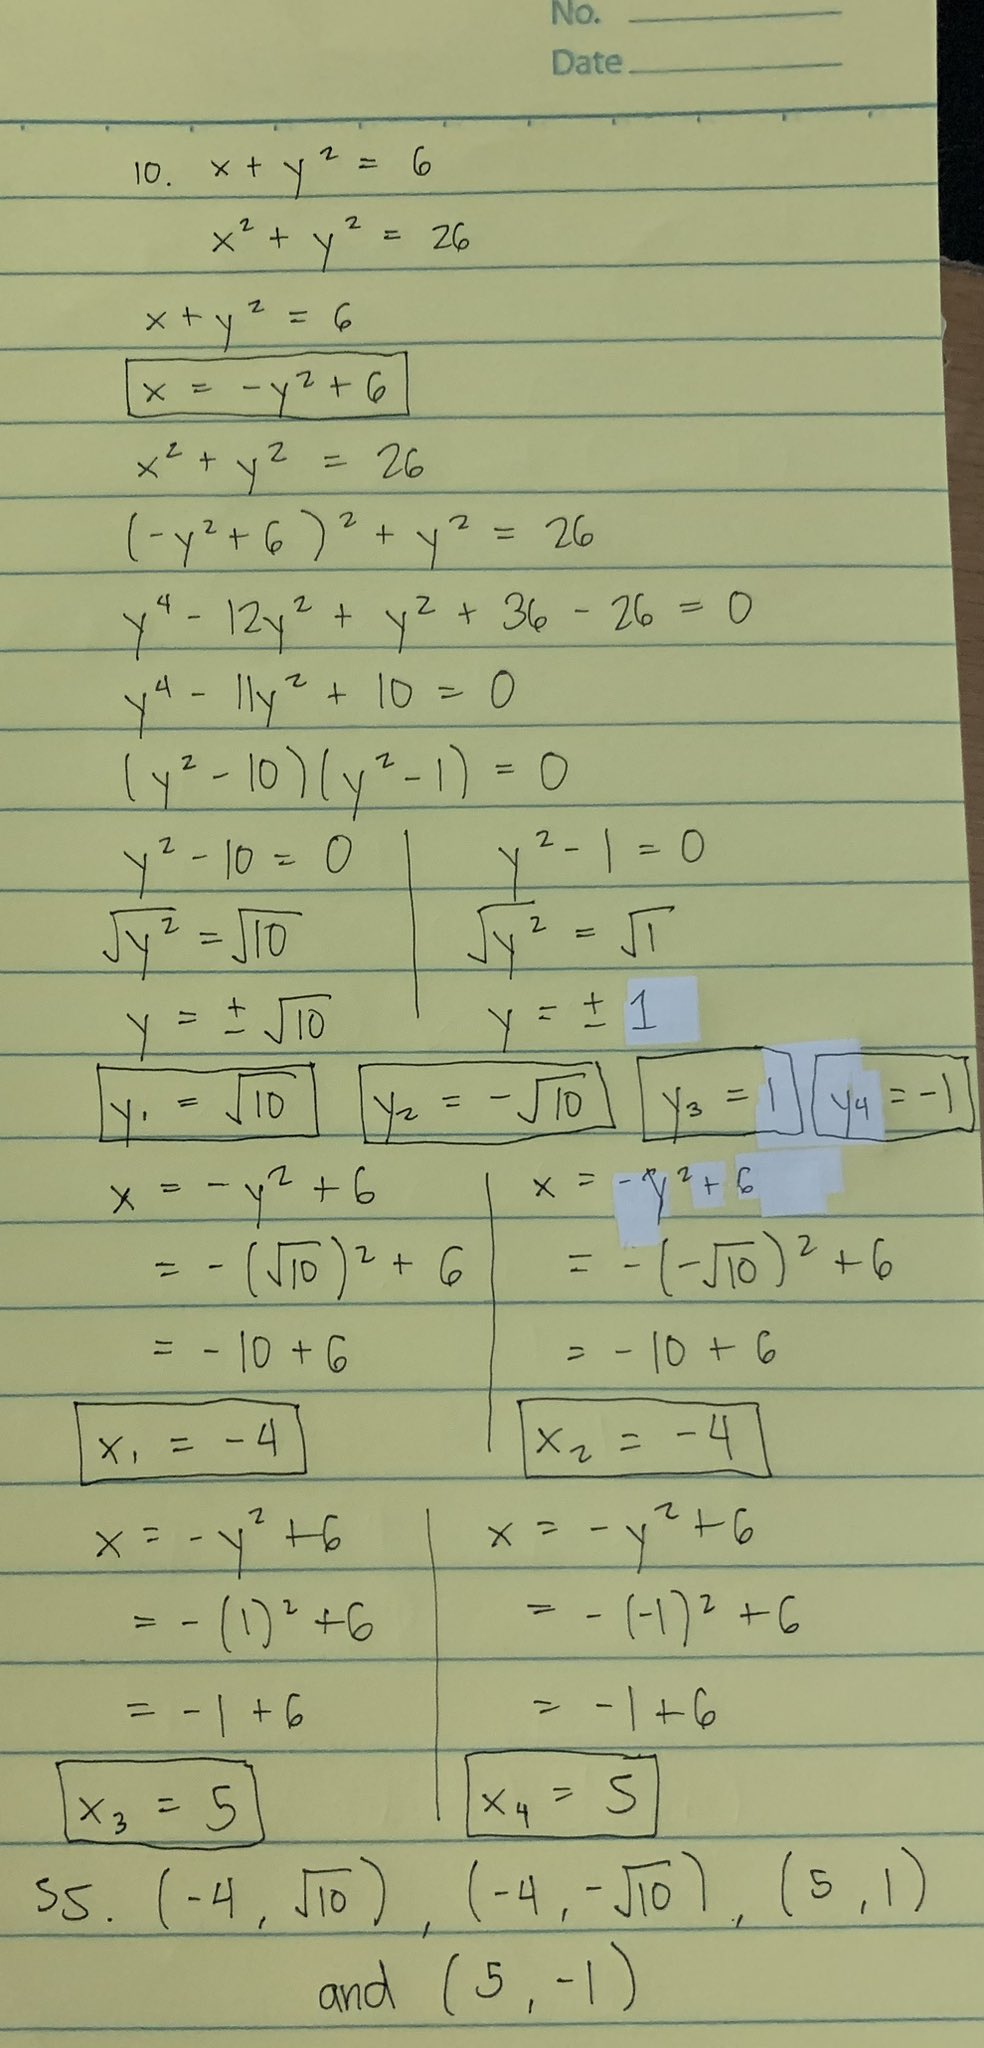 No.
Date
10. x + y² = 6
x² + y² = 26
x + y² = 6
x = -y² + 6
x² + y² = 26
(-y² + 6)² + y² = 26
y⁴ - 12y² + y² + 36 - 26 = 0
y⁴ - 11y² + 10 = 0
(y² - 10)(y² - 1) = 0
y² - 10 = 0 | y² - 1 = 0
√y² = √10 | √y² = √1
y = ± √10 | y = ± 1
y₁ = √10 y₂ = -√10 y₃ = 1 y₄ = -1
x = -y² + 6 | x = -y² + 6
= -(√10)² + 6 | = -(-√10)² + 6
= -10 + 6 | = -10 + 6
x₁ = -4 | x₂ = -4
x = -y² + 6 | x = -y² + 6
= -(1)² + 6 | = -(-1)² + 6
= -1 + 6 | = -1 + 6
x₃ = 5 | x₄ = 5
SS. (-4, √10), (-4, -√10), (5, 1)
and (5, -1)